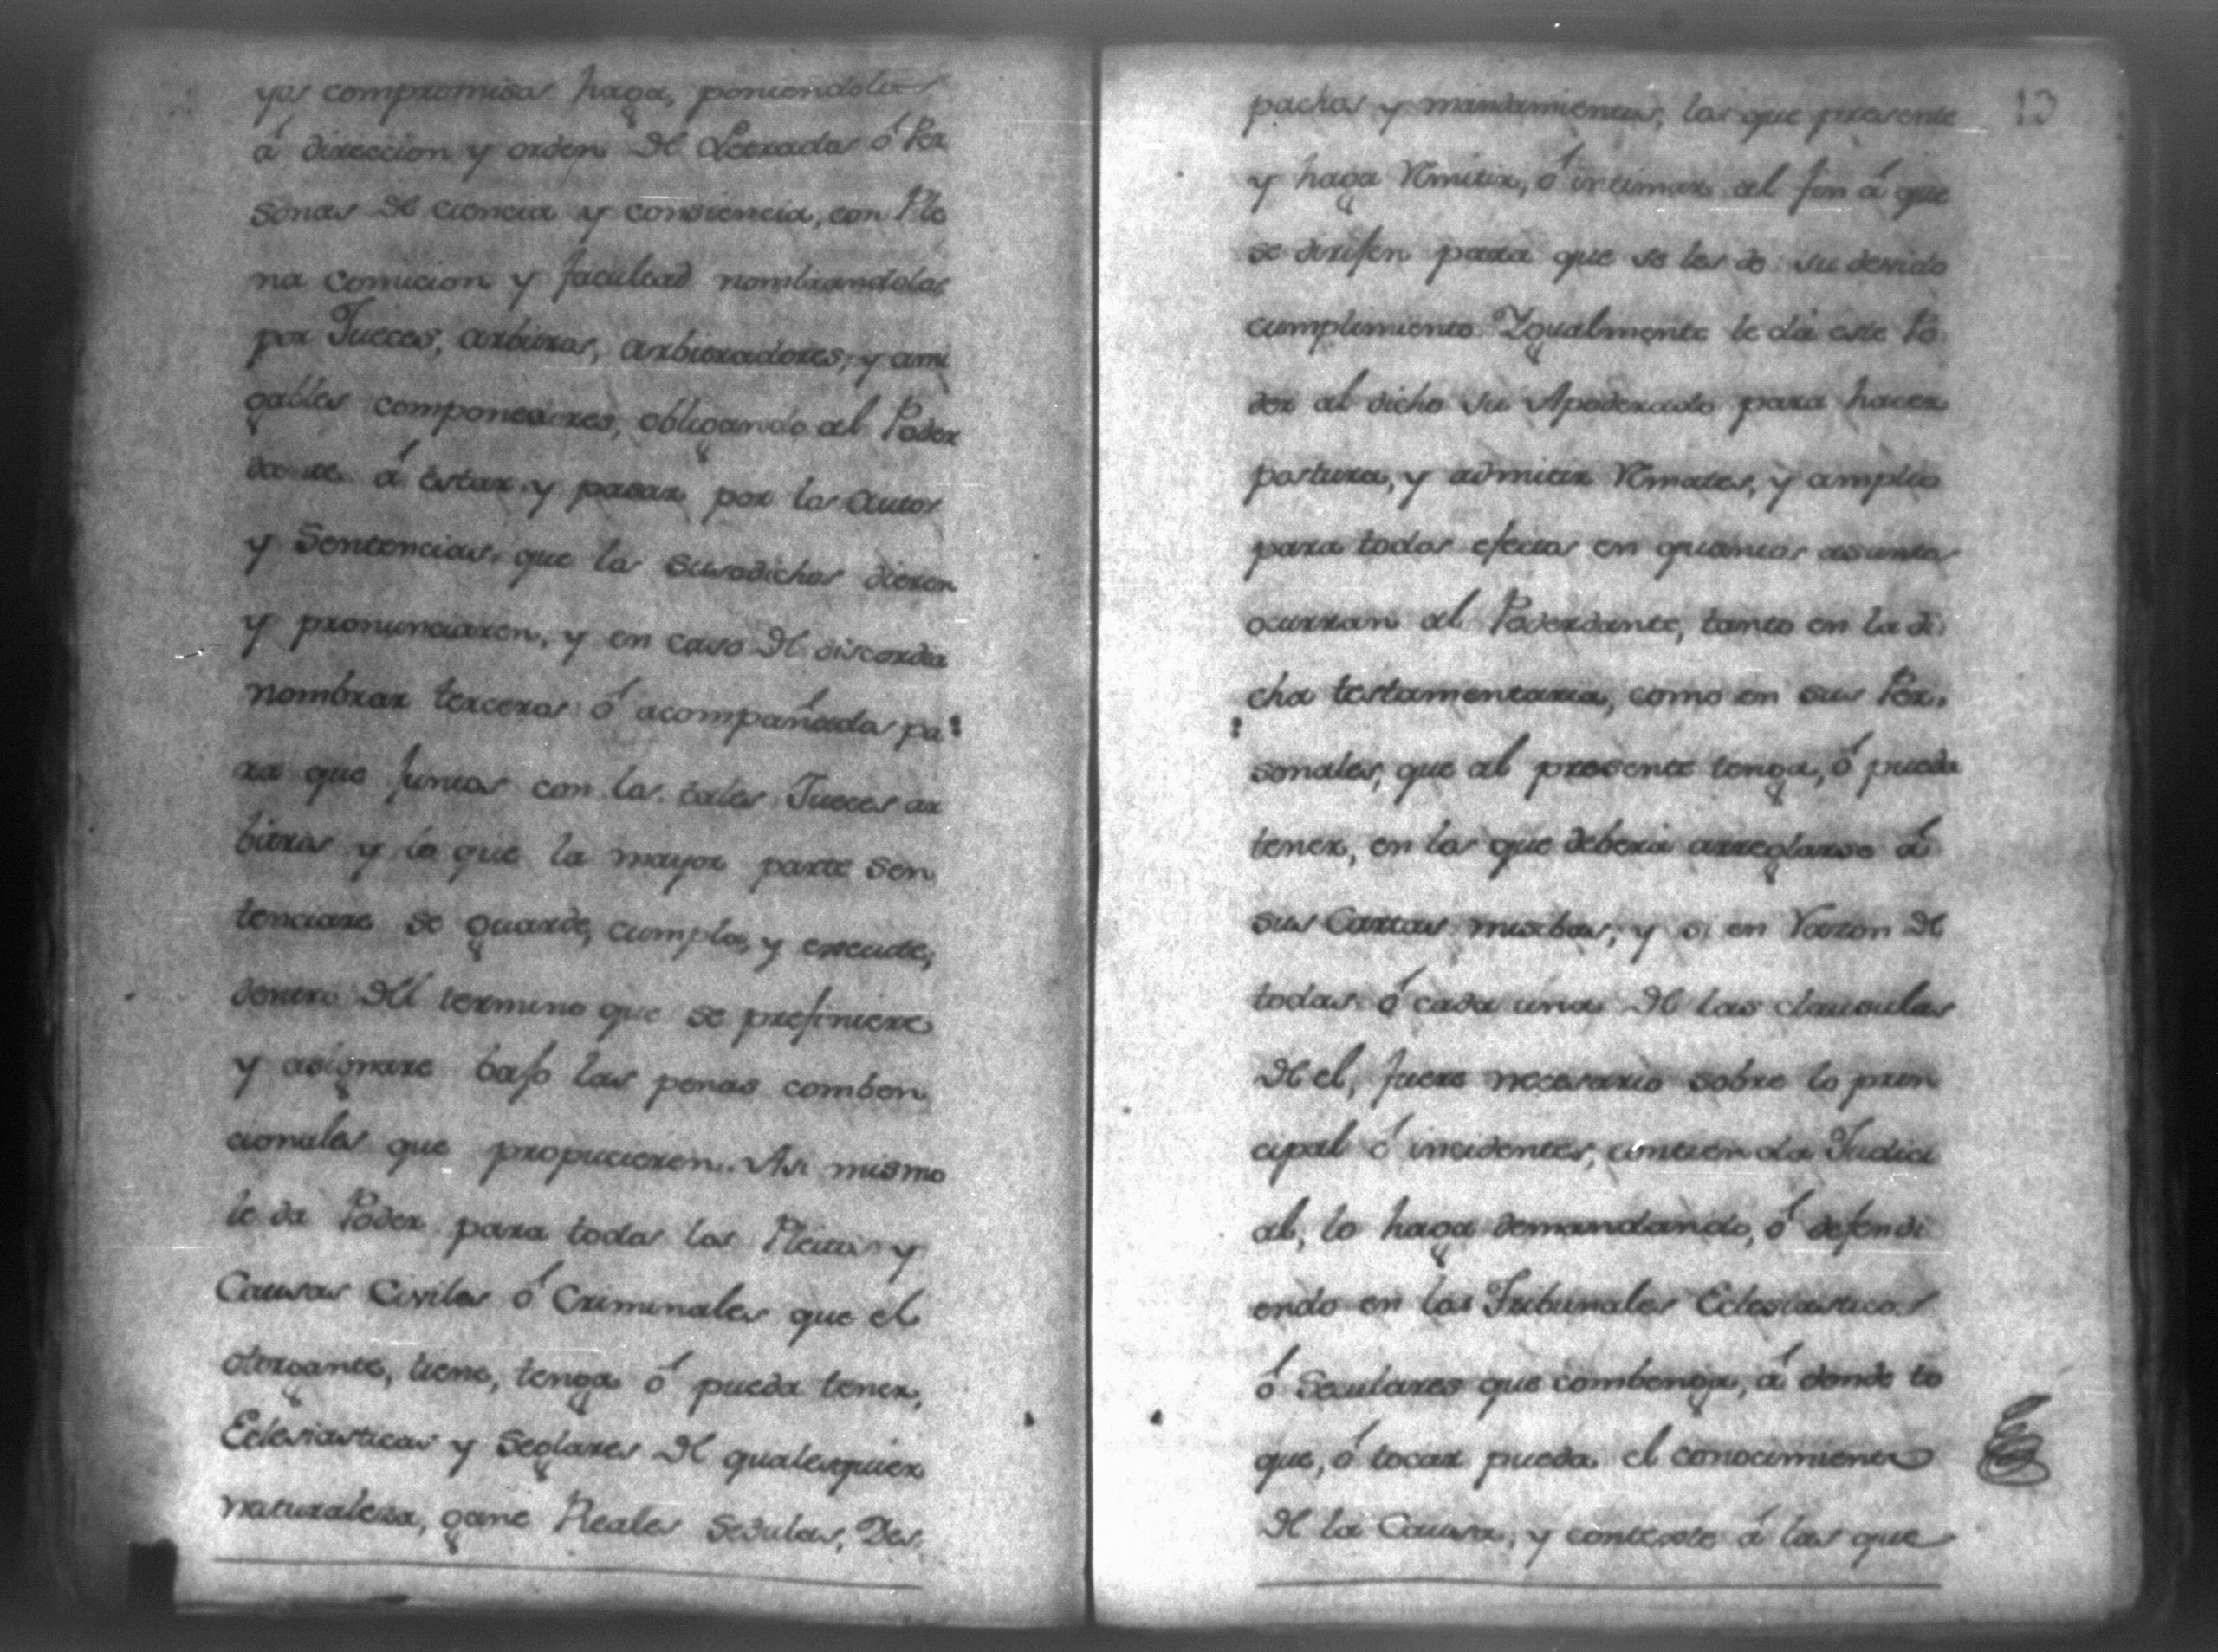 yos compromisos haga, poniendolos
á direccion y orden de Letrados ó Per
sonas de ciencia y conciencia, con Ple
na comicion y facultad nombrandolos
por Jueces, arbitros, arbitradores, y ami
gables componedores, obligando al Poder
dante á estar y pasar por los Autos
y Sentencias que los susodichos dieren
y pronunciaren, y en caso de discordia
nombrar terceros ó acompañados pa
ra que juntos con los tales Jueces ar
bitros y lo que la mayor parte sen
tenciare se guarde, cumpla, y execute,
dentro del termino que se prefiniere
y asignare bajo las penas comben
cionales que propucieren. Asi mismo
le da Poder para todos los Pleitos y
Causas Civiles ó Criminales que el
otorgante, tiene, tenga ó pueda tener,
Eclesiasticas y Seglares de qualesquier
naturaleza, gane Reales Sedulas, Des
13
pachos y mandamientos, los que presente
y haga Rmitir, ó intimar al fin á que
se dirijen para que se les de su devido
cumplimiento. Ygualmente le da este Po
der al dicho su Apoderado para hacer
postura, y admitir Rmates, y amplio
para todos efectos en quantos asuntos
ocurran al Poderdante, tanto en la di
cha testamentaria, como en sus Per
sonales, que al presente tenga, ó pueda
tener, en los que deberia arreglarse á
sus Cartas misibas, y si en Razon de
todas ó cada una de las clausulas
de el, fuere necesario sobre lo prin
cipal ó incidentes, contienda Judici
al, lo haga demandando, ó defendi
endo en los Tribunales Eclesiasticos
ó Seculares que combenga, á donde to
que, ó tocar pueda el conocimiento
de la Causa, y conteste á las que